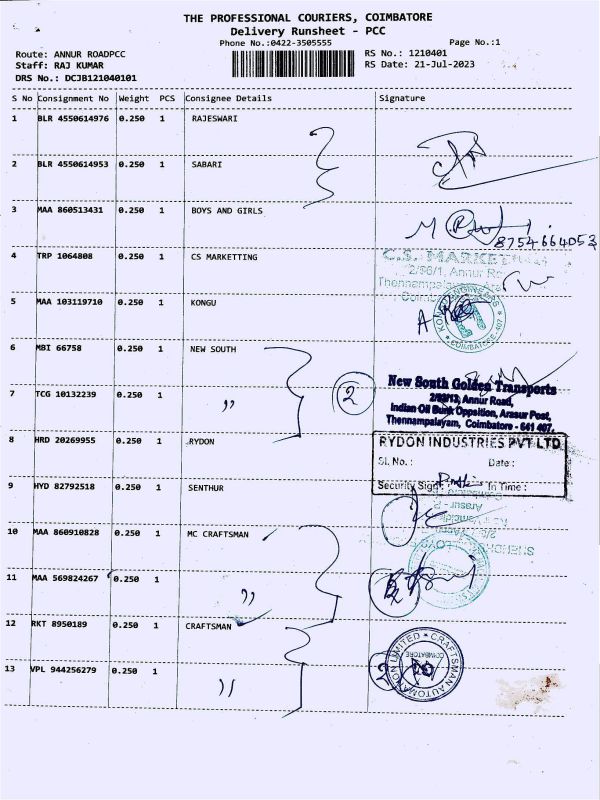 THE PROFESSIONAL COURIERS, COIMBATORE
Delivery Runsheet - PCC
Phone No.:0422-3505555
Page No.:1
Route: ANNUR ROADPCC
RS No.: 1210401
Staff: RAJ KUMAR
RS Date: 21-Jul-2023
DRS No.: DCJB121040101
S No Consignment No Weight PCS Consignee Details Signature
1 BLR 4550614976 0.250 1 RAJESWARI
2 BLR 4550614953 0.250 1 SABARI
3 MAA 860513431 0.250 1 BOYS AND GIRLS
8754664053
4 TRP 1064808 0.250 1 CS MARKETTING
C.S. MARKET
2/96/1, Annur
Thennampala
5 MAA 103119710 0.250 1 KONGU
COIMBATORE
6 MBI 66758 0.250 1 NEW SOUTH
2
New South Golden Transports
2/93/13, Annur Road,
Indian Oil Bunk Oppsition, Arasur Post,
Thennampalayam, Coimbatore - 641 407.
7 TCG 10132239 0.250 1 "
8 HRD 20269955 0.250 1 RYDON
RYDON INDUSTRIES PVT LTD
Sl. No.: Date:
Security Sign: In Time:
9 HYD 82792518 0.250 1 SENTHUR
10 MAA 860910828 0.250 1 MC CRAFTSMAN
11 MAA 569824267 0.250 1 "
12 RKT 8950189 0.250 1 CRAFTSMAN
CRAFTSMAN AUTOMATION LIMITED
COIMBATORE
2
13 VPL 944256279 0.250 1 "